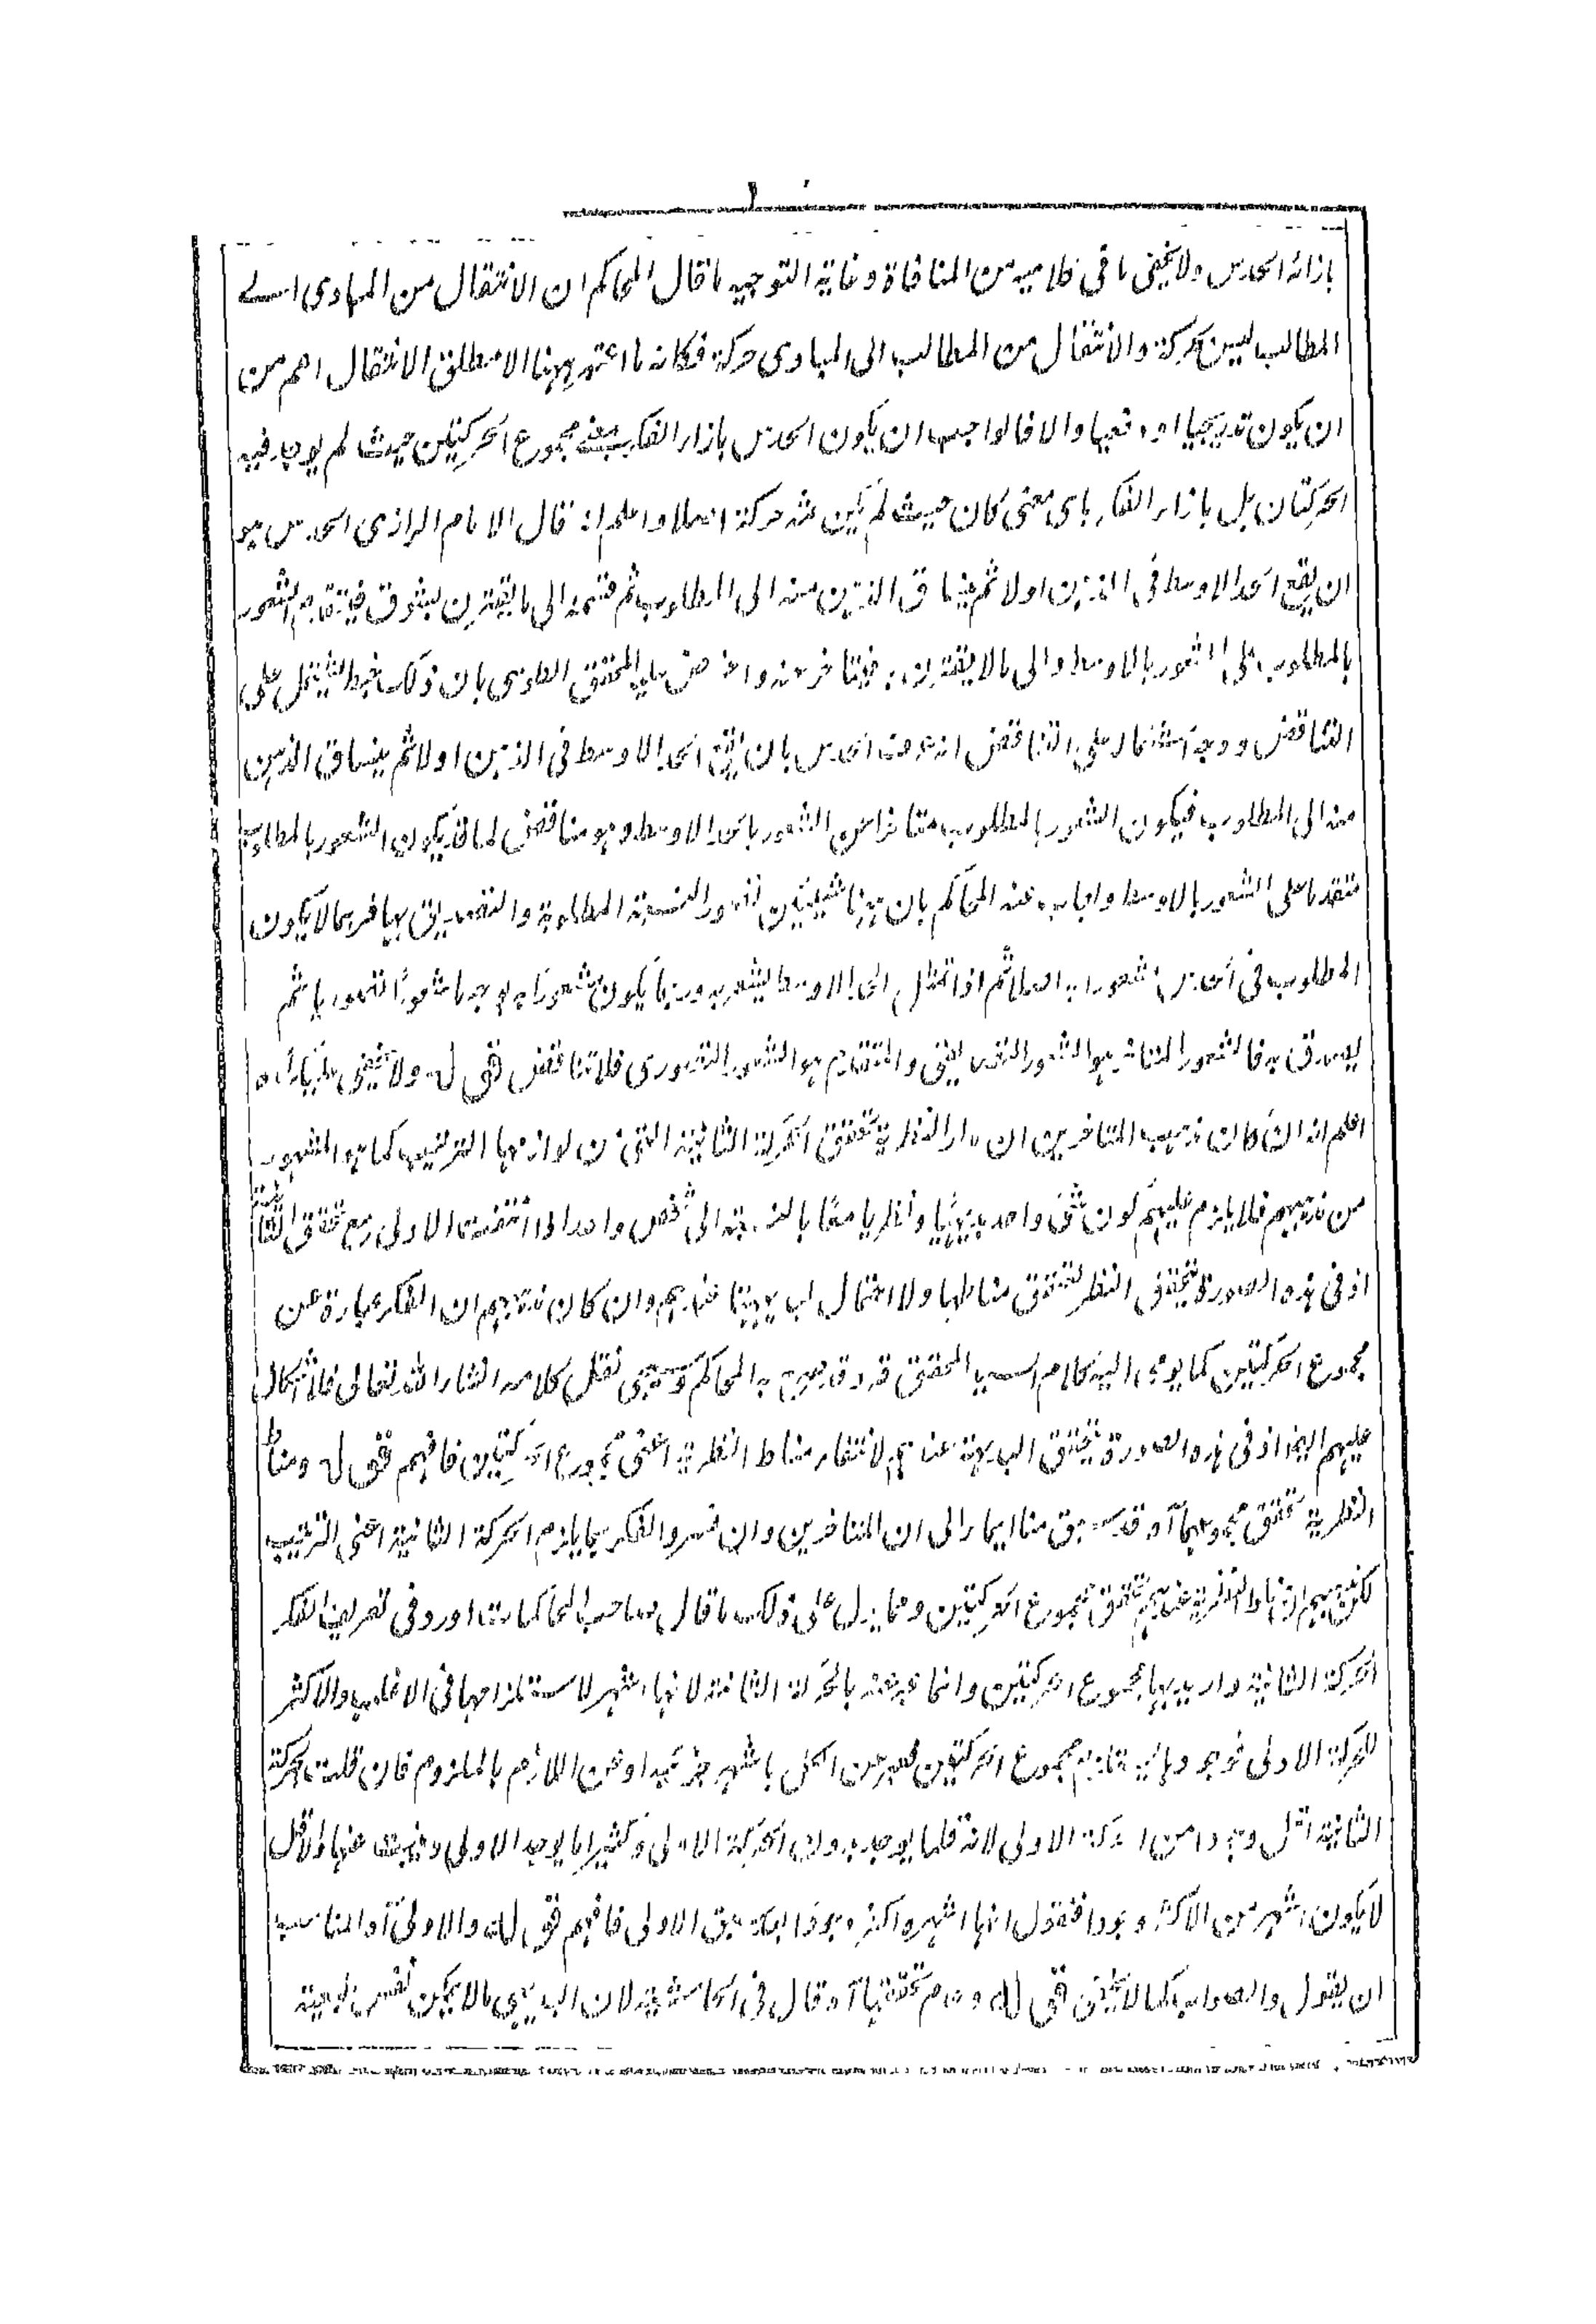 بازائه الحدس ولا يخفى ما فى كلاميه من المنافاة وغاية التوجيه ما قال المحاكم ان الانتقال من المبادى الے
المطالب ليس بحركة والانتقال من المطالب الى المبادى حركة فكانه ما اعتبر ههنا الا مطلق الانتقال اعم من
ان يكون تدريجيا او دفعيا والا فالواجب ان يكون الحدس بازاء الفكر بمعنى مجموع الحركتين حيث لم يوجد فيه
الحركتان بل بازاء الفكر باى معنى كان حيث لم يكن ثمه حركة اصلا واعلم انه قال الامام الرازى الحدس هو
ان يقع الحد الاوسط فى الذهن اولا ثم ينساق الذهن منه الى المطلوب ثم قسمه الى ما يقترن بشوق فيتقدم الشعور
بالمطلوب على الشعور بالاوسط والى ما لا يقترن به فيتاخر عنه واعترض عليه المحقق الطوسى بان ذلك خبط لاشتمل على
التناقض ووجه اشتماله على التناقض انه عرف الحدس بان يقع الحد الاوسط فى الذهن اولا ثم ينساق الذهن
منه الى المطلوب فيكون الشعور بالمطلوب متاخرا عن الشعور بالحد الاوسط وهو مناقض لما قد يكون الشعور بالمطلوب
متقدما على الشعور بالاوسط واجاب عنه المحاكم بان ههنا شيئين تصور القضية المطلوبة والتصديق بها فربما لا يكون
المطلوب فى الحدس مشعورا به اصلا ثم اذا تمثل الحد الاوسط يشعر به وربما يكون مشعورا به بوجه ما شعورا تصوريا ثم
يصدق به فالشعور المتاخر هو الشعور التصديقى والمتقدم هو الشعور التصورى فلا تناقض قوله ولا يخفى عليك آه
اعلم انه ان كان مذهب المتاخرين ان مدار النظرية تحقق الحركة الثانية التى من لوازمها الترتيب كما هو المشهور
من مذهبهم فلا يلزم عليهم كون شئ واحد بديهيا ونظريا معا بالنسبة الى شخص واحد اذا انتفت الاولى مع تحقق الثانية
اذ فى هذه الصورة يتحقق النظر لتحقق مناطها ولا احتمال لبديهيتها عندهم وان كان مذهبهم ان الفكر عبارة عن
مجموع الحركتين كما يومى اليه كلام السيد المحقق قد وقد صرح به المحاكم وسيجئ نقل كلامه انشاء الله تعالى فلا اشكال
عليهم ايضا اذ فى هذه الصورة يتحقق البداهة عندهم لانتفاء مناط النظرية اعنى مجموع الحركتين فافهم قوله ومناط
النظرية تحقق مجموعهما آه قد سبق منا ايماء الى ان المتاخرين وان فسروا الفكر بما يلزم الحركة الثانية اعنى الترتيب
لكن مناط النظرية عندهم تحقق مجموع الحركتين ومما يدل على ذلك ما قال صاحب المحاكمات اورد فى تعريف الفكر
الحركة الثانية واريد بها مجموع الحركتين وانما عبر عنه بالحركة الثانية لانها اشهر لاستلزامها فى الاغلب والاكثر
للحركة الاولى فوجودها يستلزم مجموع الحركتين فعبر عن الكل باشهر جزئيه او عن اللازم بالملزوم فان قلت الحركة
الثانية اقل وجودا من الحركة الاولى لانه قلما يوجد بدون الحركة الاولى وكثيرا ما يوجد الاولى وينفك عنها والاقل
لا يكون اشهر من الاكثر وجودا فنقول انها اشهر واكثر وجودا بعد سبق الاولى فافهم قوله والاولى آه المناسب
ان يقول والصواب كما لا يخفى قوله وعدم تحققها آه قال فى الحاشية لان البديهى ما لا يمكن